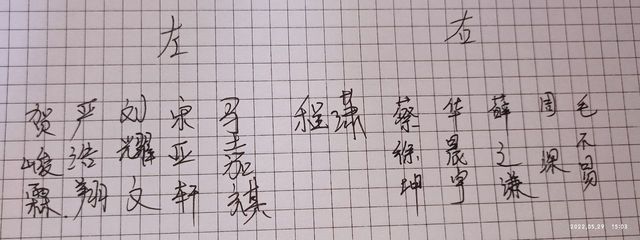 左
右
贺峻霖
严浩翔
刘耀文
宋亚轩
马嘉祺
程
蔡徐坤
华晨宇
薛之谦
周深
毛不易
2022.05.29 15:03